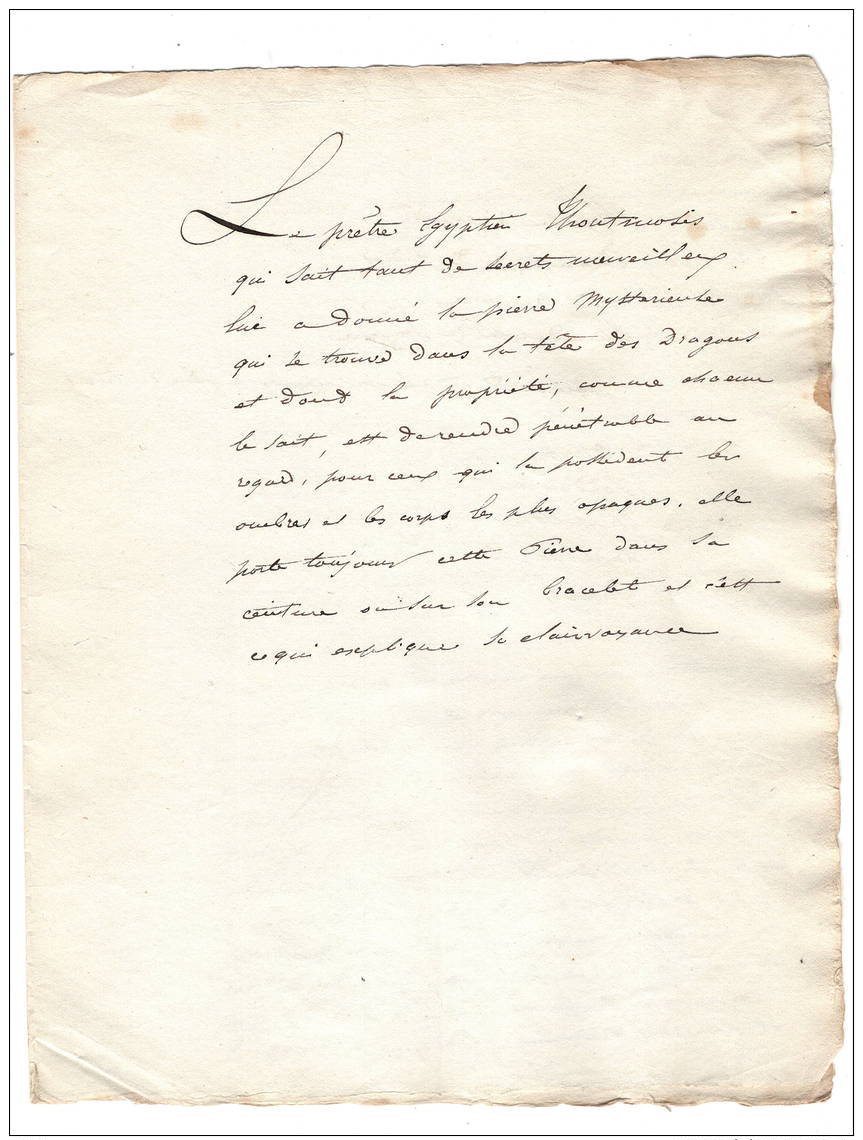 Le prêtre Egyptien Thoutmosis
qui sait tant de secrets merveilleux
lui a donné la pierre Mysterieuse
qui se trouve dans la tête des Dragons
et dont la propriété, comme chacun
le sait, est de rendre pénétrable au
regard, pour ceux qui la possèdent les
ombres et les corps les plus opaques. elle
porte toujours cette Pierre dans sa
ceinture ou sur son bracelet et c'est
ce qui explique sa clairvoyance